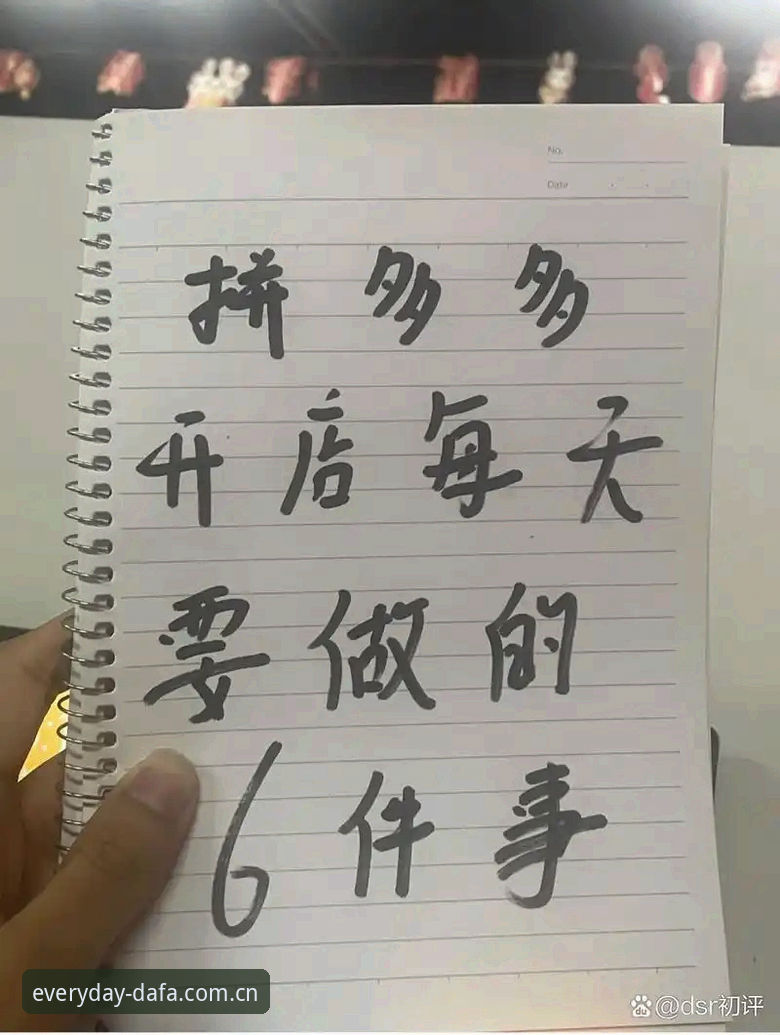 No.
Date
拼多多
开店每天
要做的
6件事
everyday-dafa.com.cn
@dsr初评